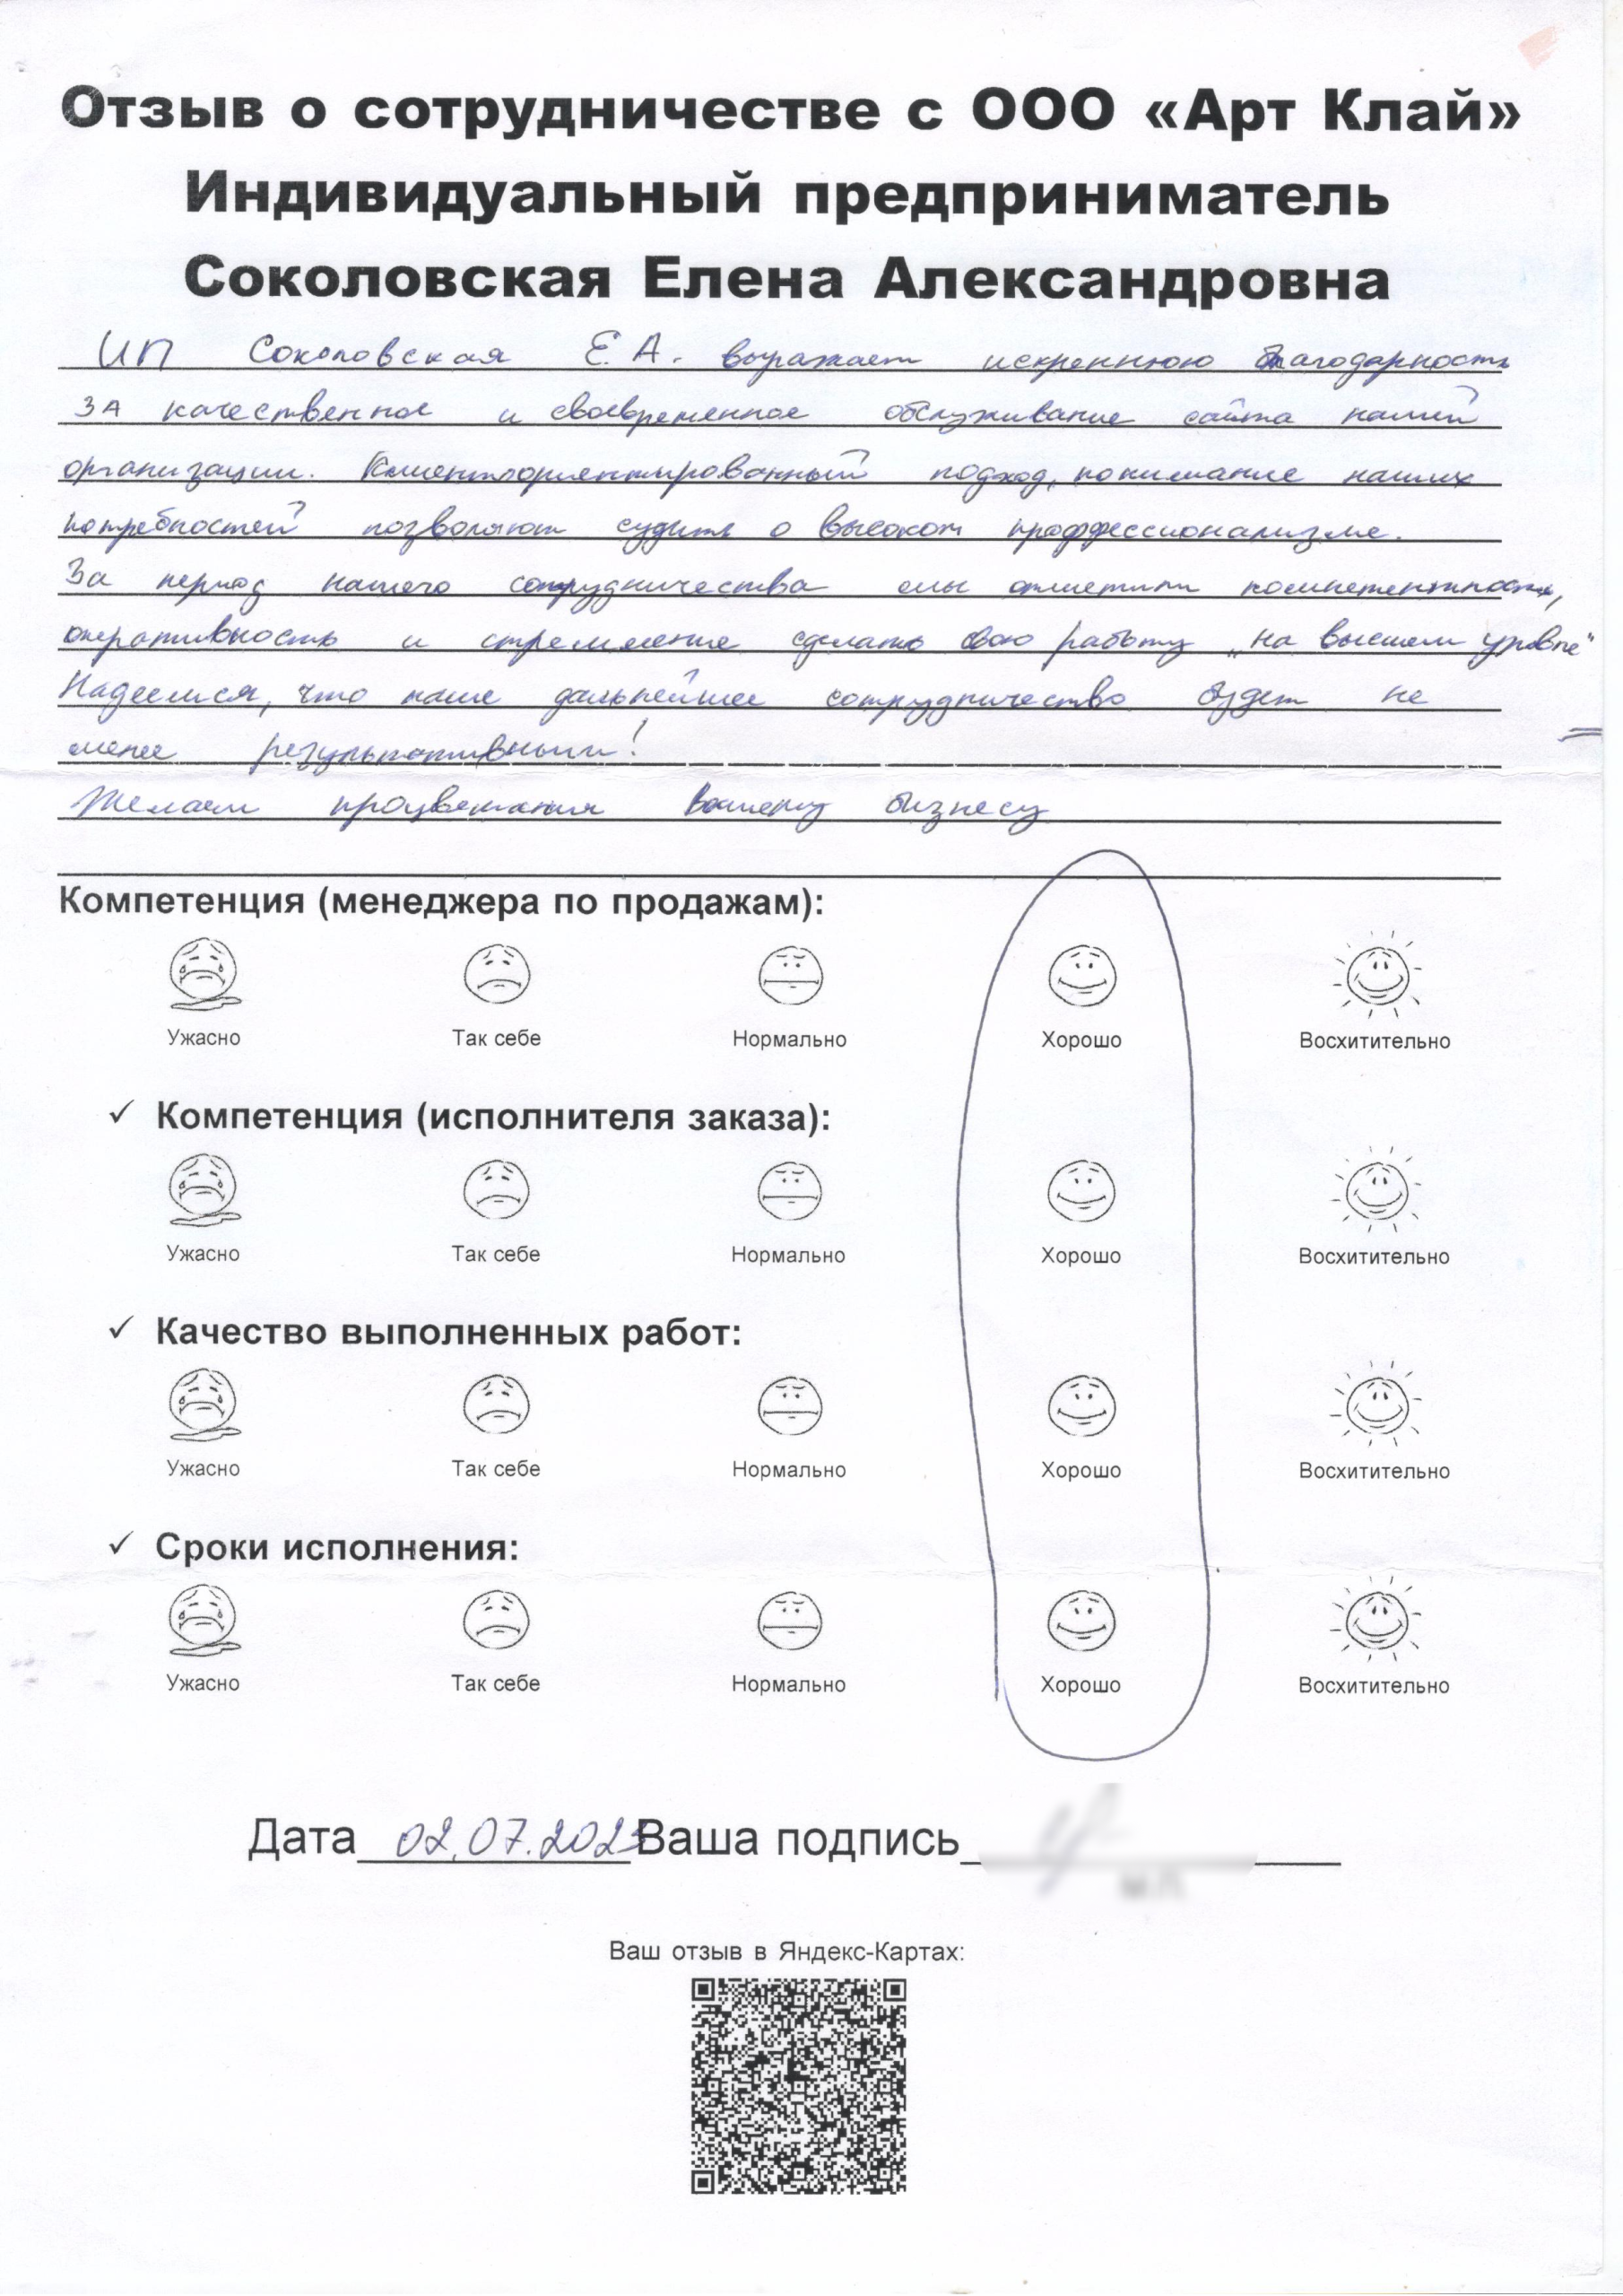 Отзыв о сотрудничестве с ООО «Арт Клай»
Индивидуальный предприниматель
Соколовская Елена Александровна
ИП Соколовская Е.А. выражает искреннюю благодарность
за качественное и своевременное обслуживание сайта нашей
организации. Клиентоориентированный подход, понимание наших
потребностей позволяют судить о высоком проффессионализме.
За период нашего сотрудничества мы отметили компетентность,
оперативность и стремление сделать свою работу „на высшем уровне"
Надеемся, что наше дальнейшее сотрудничество будет не
менее результативным!
Желаем процветания Вашему бизнесу
Компетенция (менеджера по продажам):
Ужасно Так себе Нормально Хорошо Восхитительно
✓ Компетенция (исполнителя заказа):
Ужасно Так себе Нормально Хорошо Восхитительно
✓ Качество выполненных работ:
Ужасно Так себе Нормально Хорошо Восхитительно
✓ Сроки исполнения:
Ужасно Так себе Нормально Хорошо Восхитительно
Дата 02.07.2023 Ваша подпись
Ваш отзыв в Яндекс-Картах: